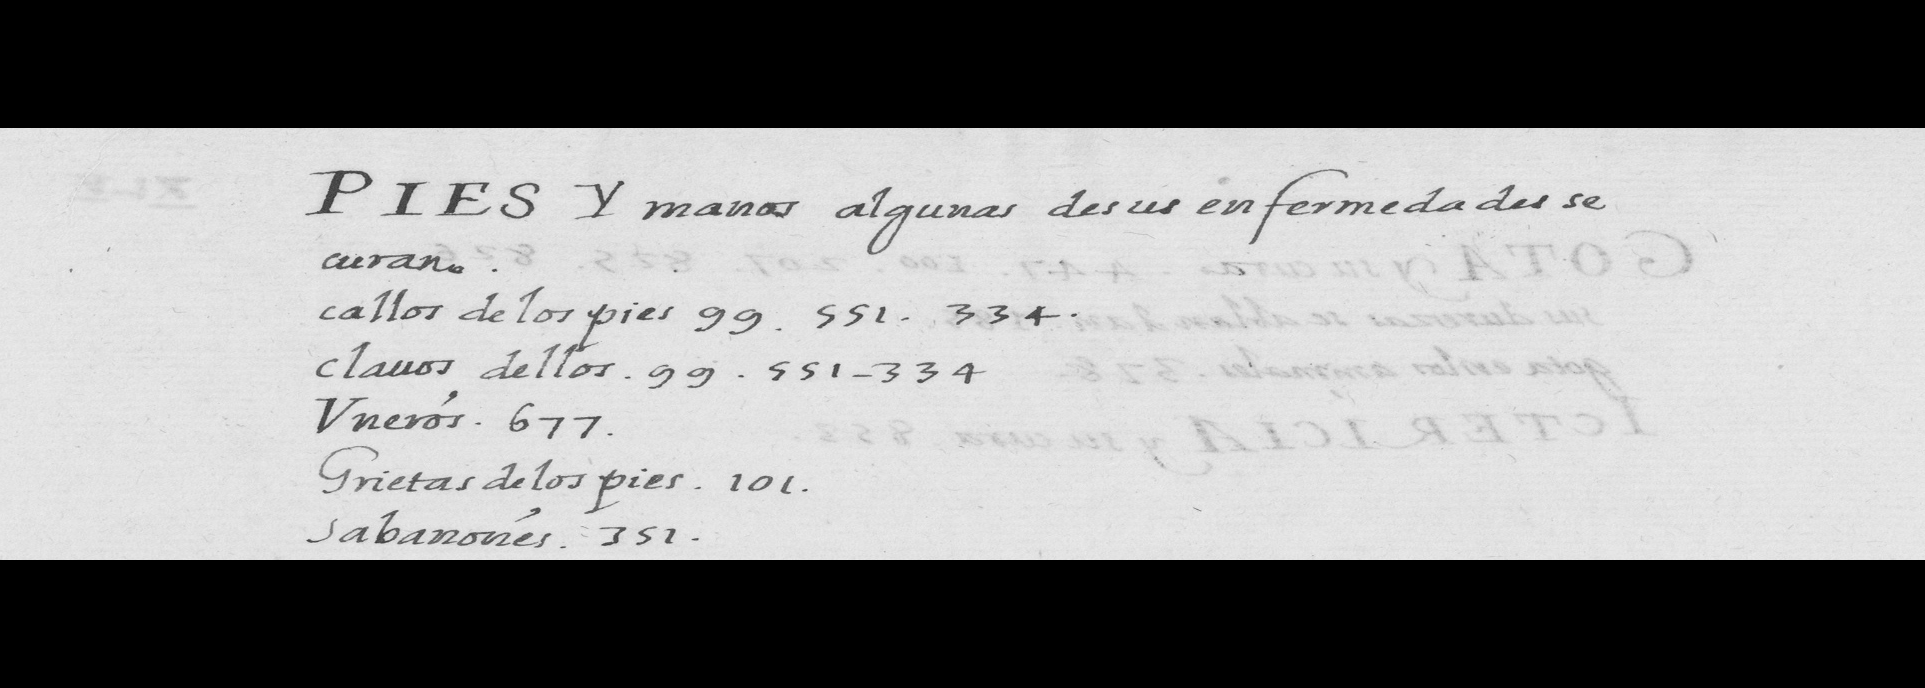 PIES Y manos algunas desus enfermedades se
curan.
callos delos pies 99. 551. 334.
clauos dellos. 99. 551-334
Vneros. 677.
Grietas delos pies. 101.
sabanonés. 351.